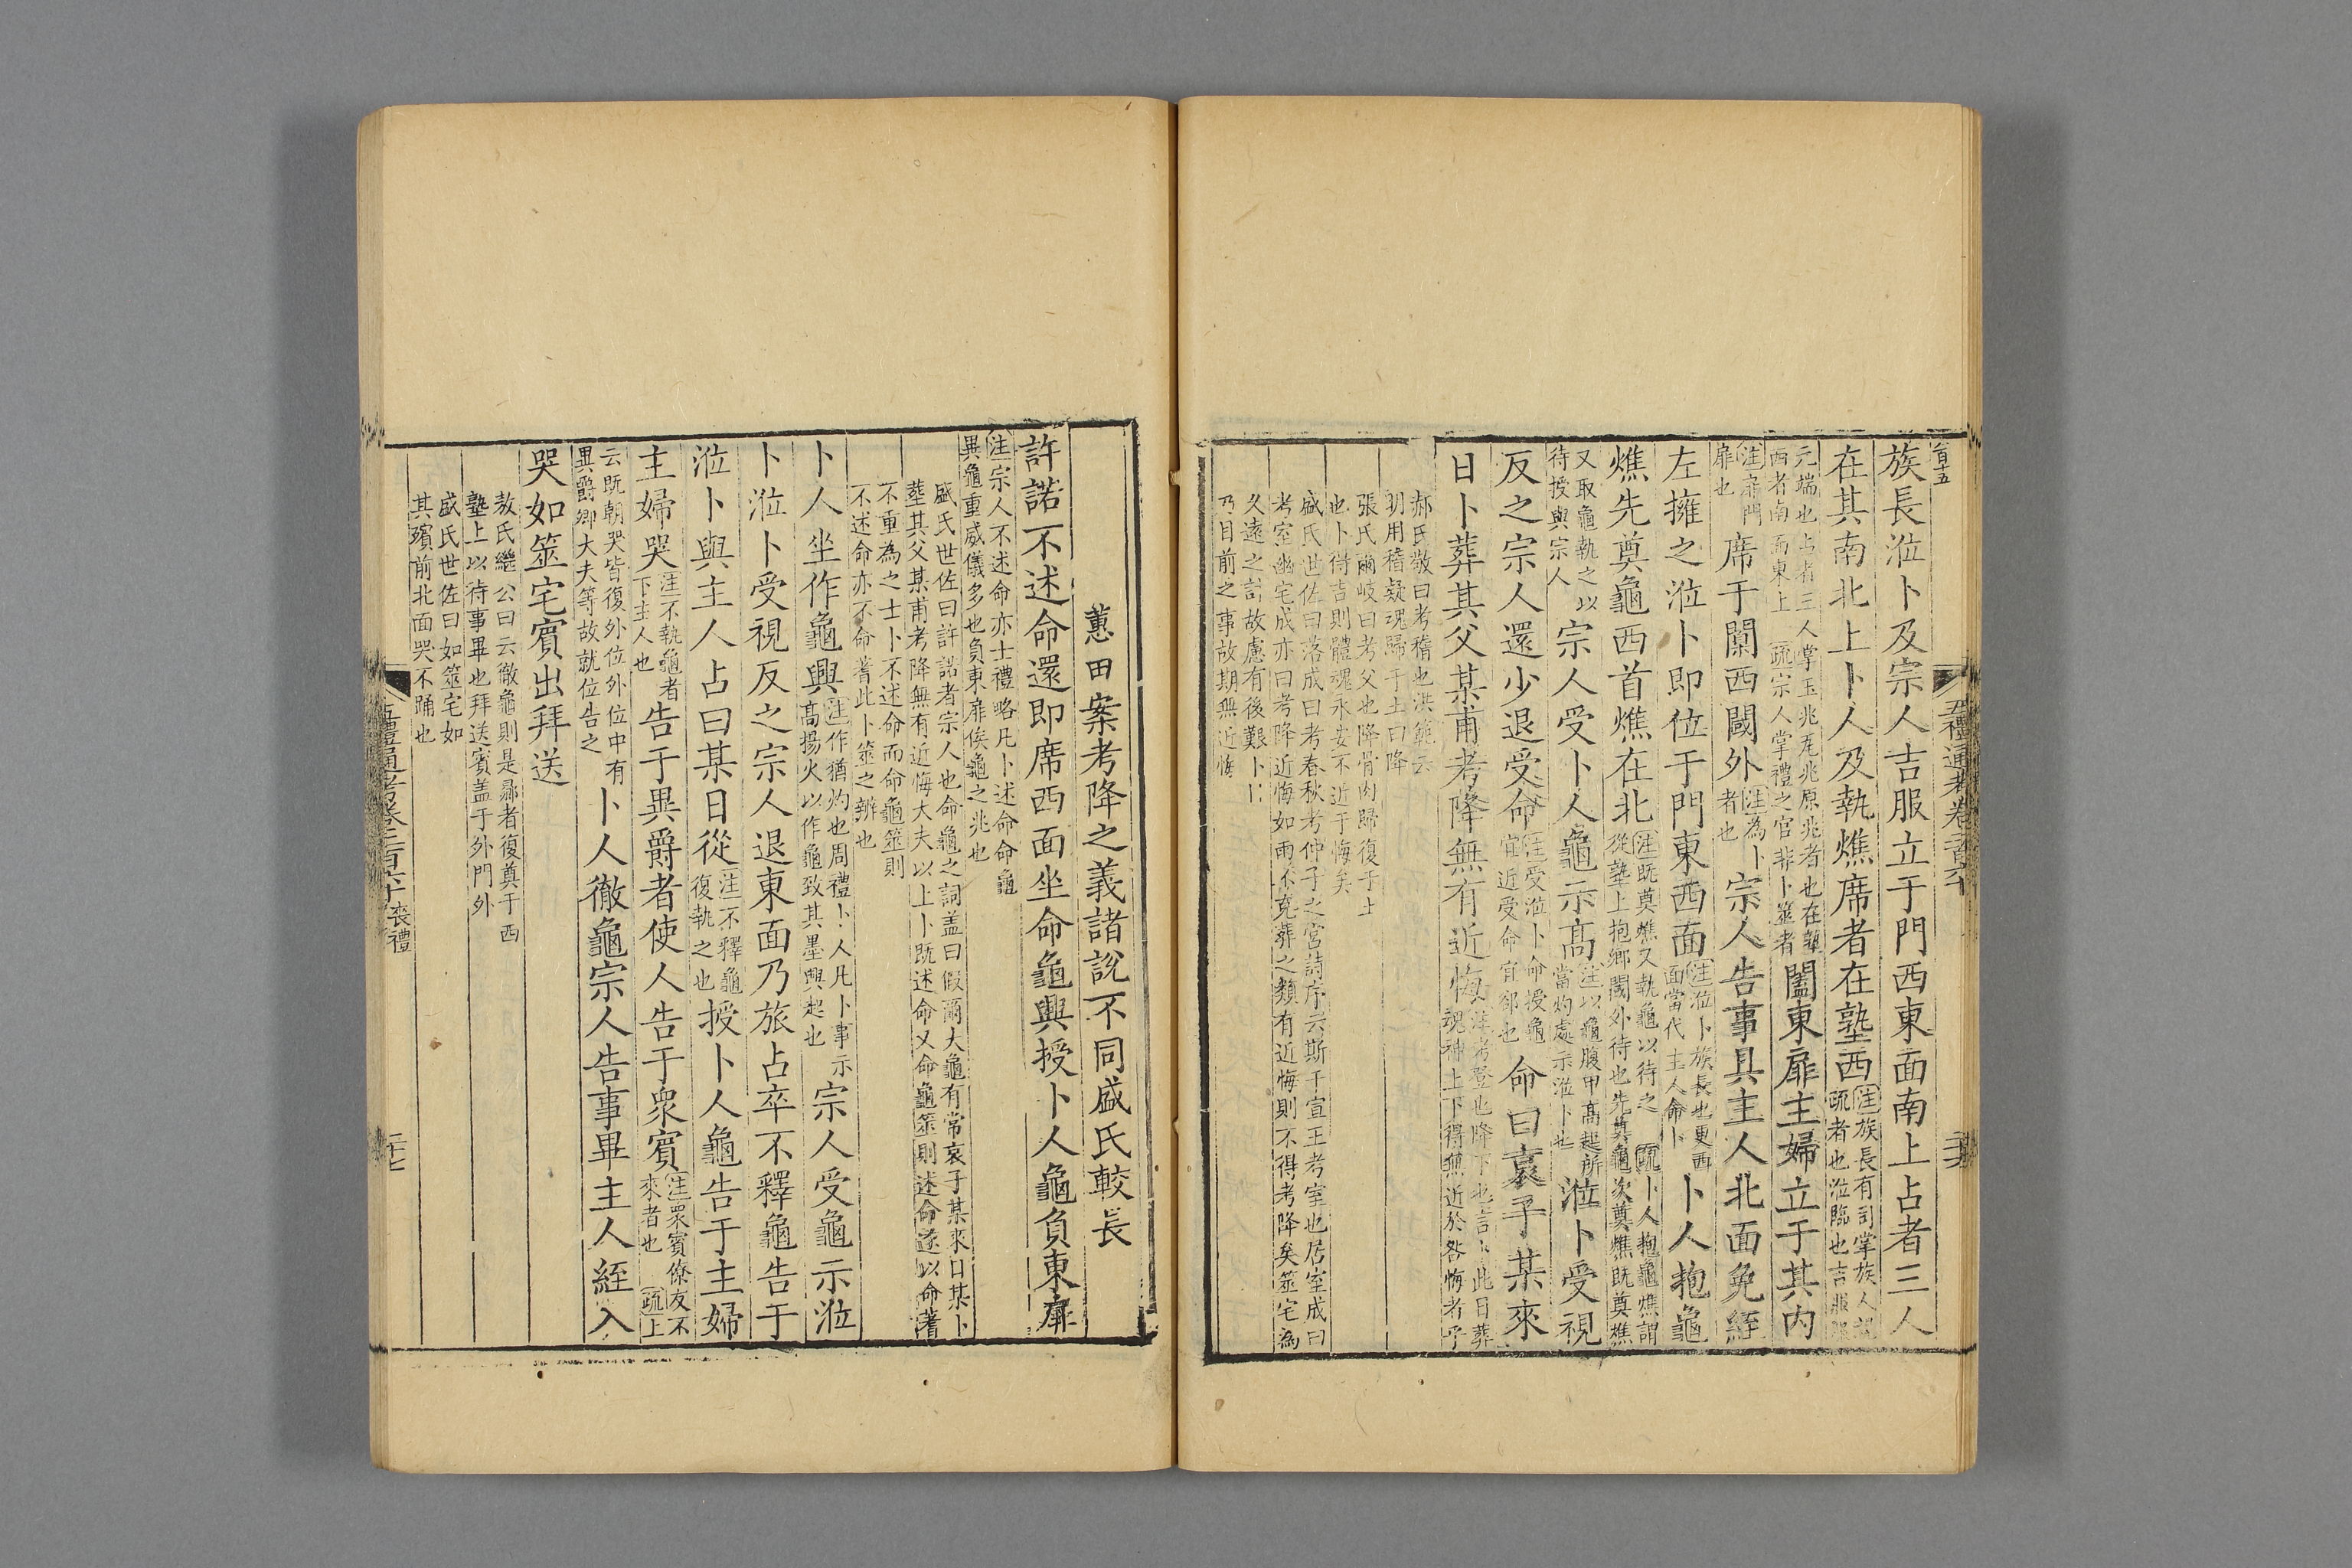 五禮通考卷二百六十
族長涖卜及宗人吉服立于門西東面南上占者三人
在其南北上卜人及執燋席者在塾西
注族長有司掌族人親
疏者也涖臨也吉服服
元端也占者三人掌玉兆瓦兆原兆者也在塾
西者南面東上 疏宗人掌禮之官非卜筮者
闔東扉主婦立于其內
注扉門
扉也
席于闑西閾外
注為卜
者也
宗人告事具主人北面免絰
左擁之涖卜即位于門東西面
注涖卜族長也更西
面當代主人命卜
卜人抱龜
燋先奠龜西首燋在北
注既奠燋又執龜以待之 疏卜人抱龜燋謂
從塾上抱鄉閾外待也先奠龜次奠燋既奠燋
又取龜執之以
待授與宗人
宗人受卜人龜示高
注以龜腹甲高起所
當灼處示涖卜也
涖卜受視
反之宗人還少退受命
注受涖卜命授龜
宜近受命宜卻也
命曰哀子某來
日卜葬其父某甫考降無有近悔
注考登也降下也言卜此日葬
魂神上下得無近於咎悔者乎
郝氏敬曰考稽也洪範云
明用稽疑魂歸于土曰降
張氏爾岐曰考父也降骨肉歸復于土
也卜得吉則體魂永安不近于悔矣
盛氏世佐曰落成曰考春秋考仲子之宮詩序云斯干宣王考室也居室成曰
考室幽宅成亦曰考降近悔如雨不克葬之類有近悔則不得考降矣筮宅為
久遠之計故慮有後艱卜日
乃目前之事故期無近悔
蕙田案考降之義諸說不同盛氏較長
許諾不述命還即席西面坐命龜興授卜人龜負東扉
注宗人不述命亦士禮略凡卜述命命龜
異龜重威儀多也負東扉俟龜之兆也
盛氏世佐曰許諾者宗人也命龜之詞蓋曰假爾大龜有常哀子某來日某卜
葬其父某甫考降無有近悔大夫以上卜既述命又命龜筮則述命遂以命蓍
不重為之士卜不述命而命龜筮則
不述命亦不命蓍此卜筮之辨也
卜人坐作龜興
注作猶灼也周禮卜人凡卜事示
高揚火以作龜致其墨興起也
宗人受龜示涖
卜涖卜受視反之宗人退東面乃旅占卒不釋龜告于
涖卜與主人占曰某日從
注不釋龜
復執之也
授卜人龜告于主婦
主婦哭
注不執龜者
下主人也
告于異爵者使人告于眾賓
注眾賓僚友不
來者也 疏上
云既朝哭皆復外位外位中有
異爵卿大夫等故就位告之
卜人徹龜宗人告事畢主人絰入
哭如筮宅賓出拜送
敖氏繼公曰云徹龜則是曏者復奠于西
塾上以待事畢也拜送賓蓋于外門外
盛氏世佐曰如筮宅如
其殯前北面哭不踊也
五禮通考卷二百六十 喪禮
二十七